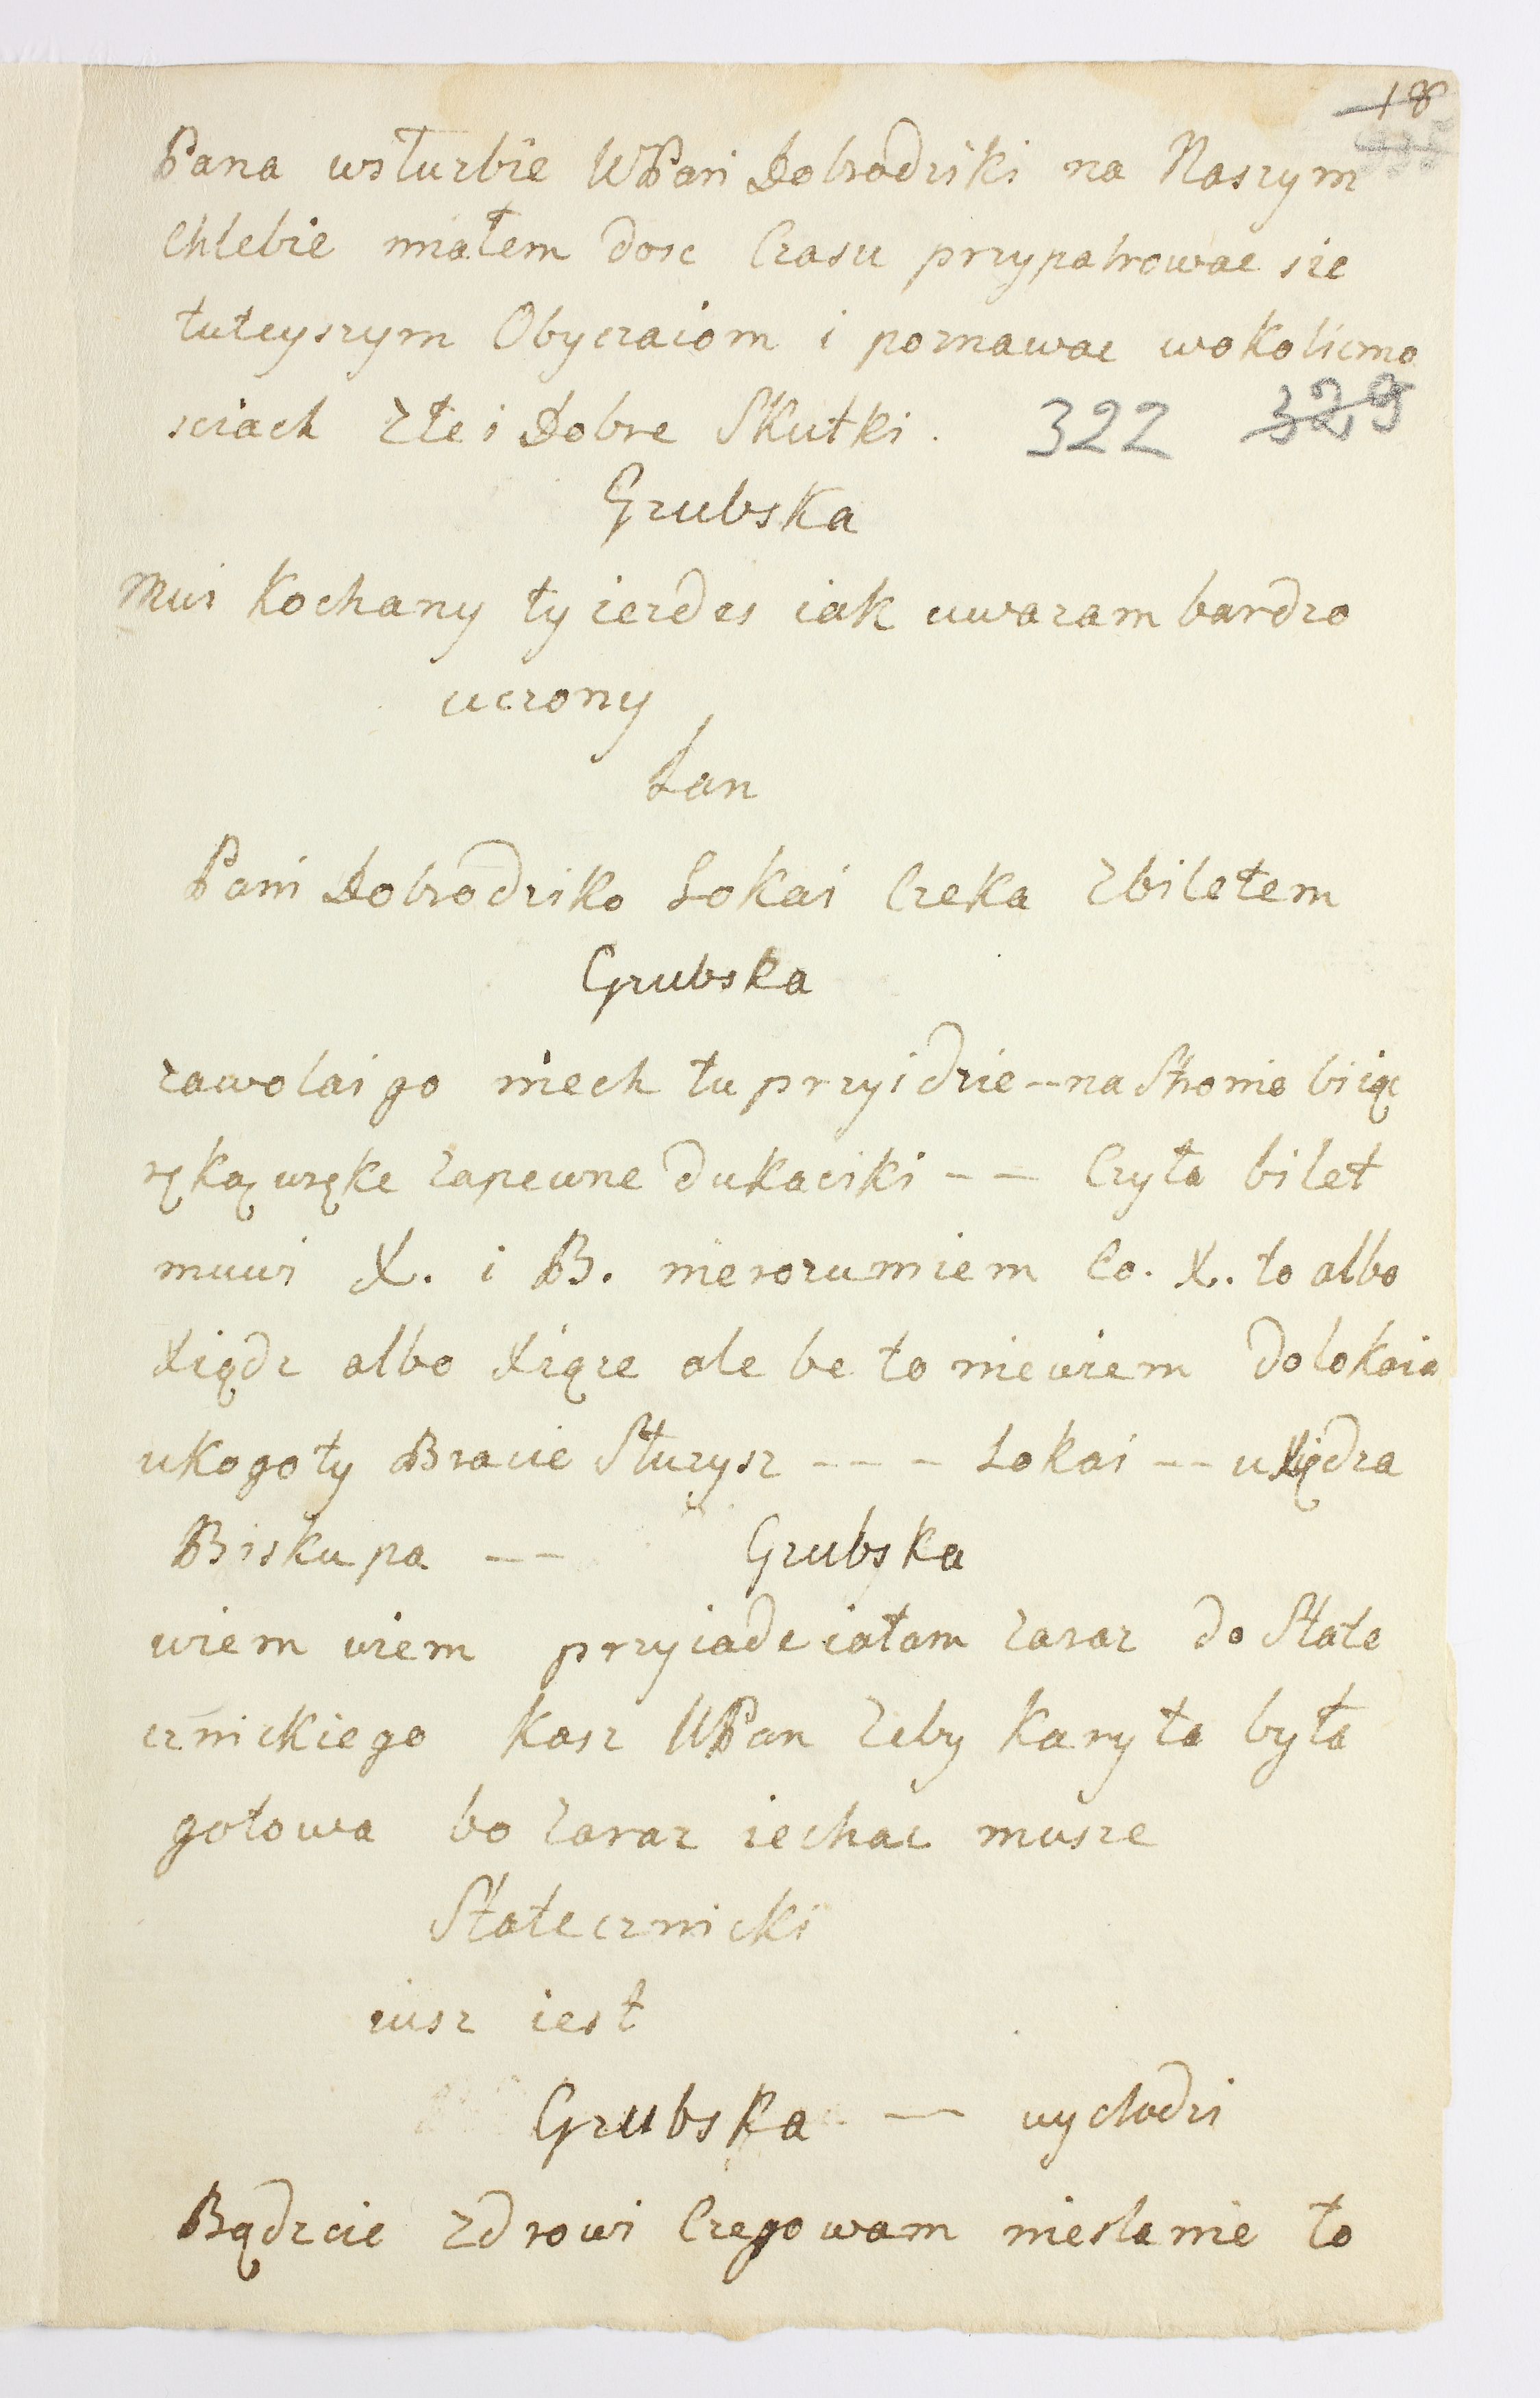 18
Pana wsłurbie WPani Dobrodziki na Naszym
Chlebie miałem dosc Czasu przypatrowac sie
tuteyszym Obyczaiom i poznawac wokolicmo
sciach złe i Dobre Skutki. 322 329
Grubska
Mui Kochany ty iezdes iak uwazam bardzo
uczony
Łan
Pani Dobrodziko Lokai Czeka zbiletem
Grubska
zawolai go niech tu przyidzie -- na Stronie biiąc
ręką wrękę zapewne dukaciki -- Czyta bilet
muwi X. i B. nierozumiem Co. X. to albo
Xiądz albo Xiąze ale be to niewiem do lokaia
ukogo ty Bracie Słuzysz --- Lokai -- u Xiędza
Biskupa -- Grubska
wiem wiem przyiade iatam zaraz do State
cznickiego kasz WPan zeby Karyta była
gotowa bo zaraz iechac musze
Statecznicki
iusz iest
Grubska -- wychodzi
Bądzcie zdrowi Czego wam niestanie to